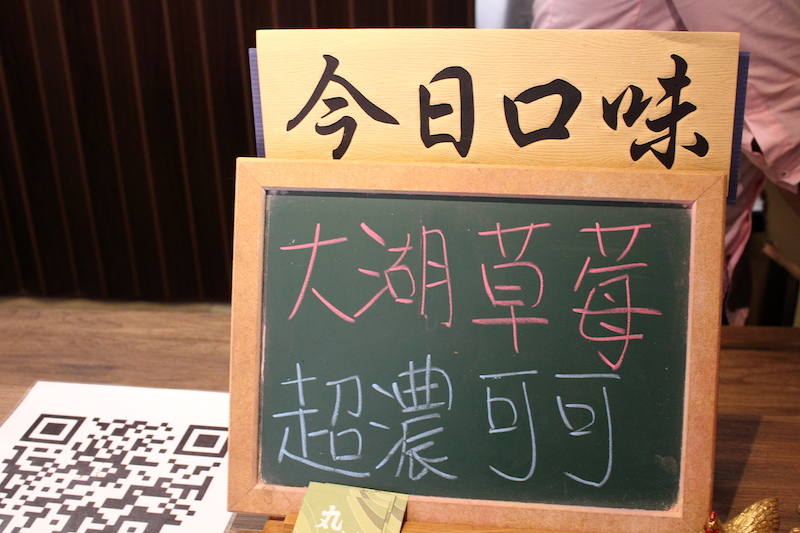 今日口味
大湖草莓
超濃可可
丸